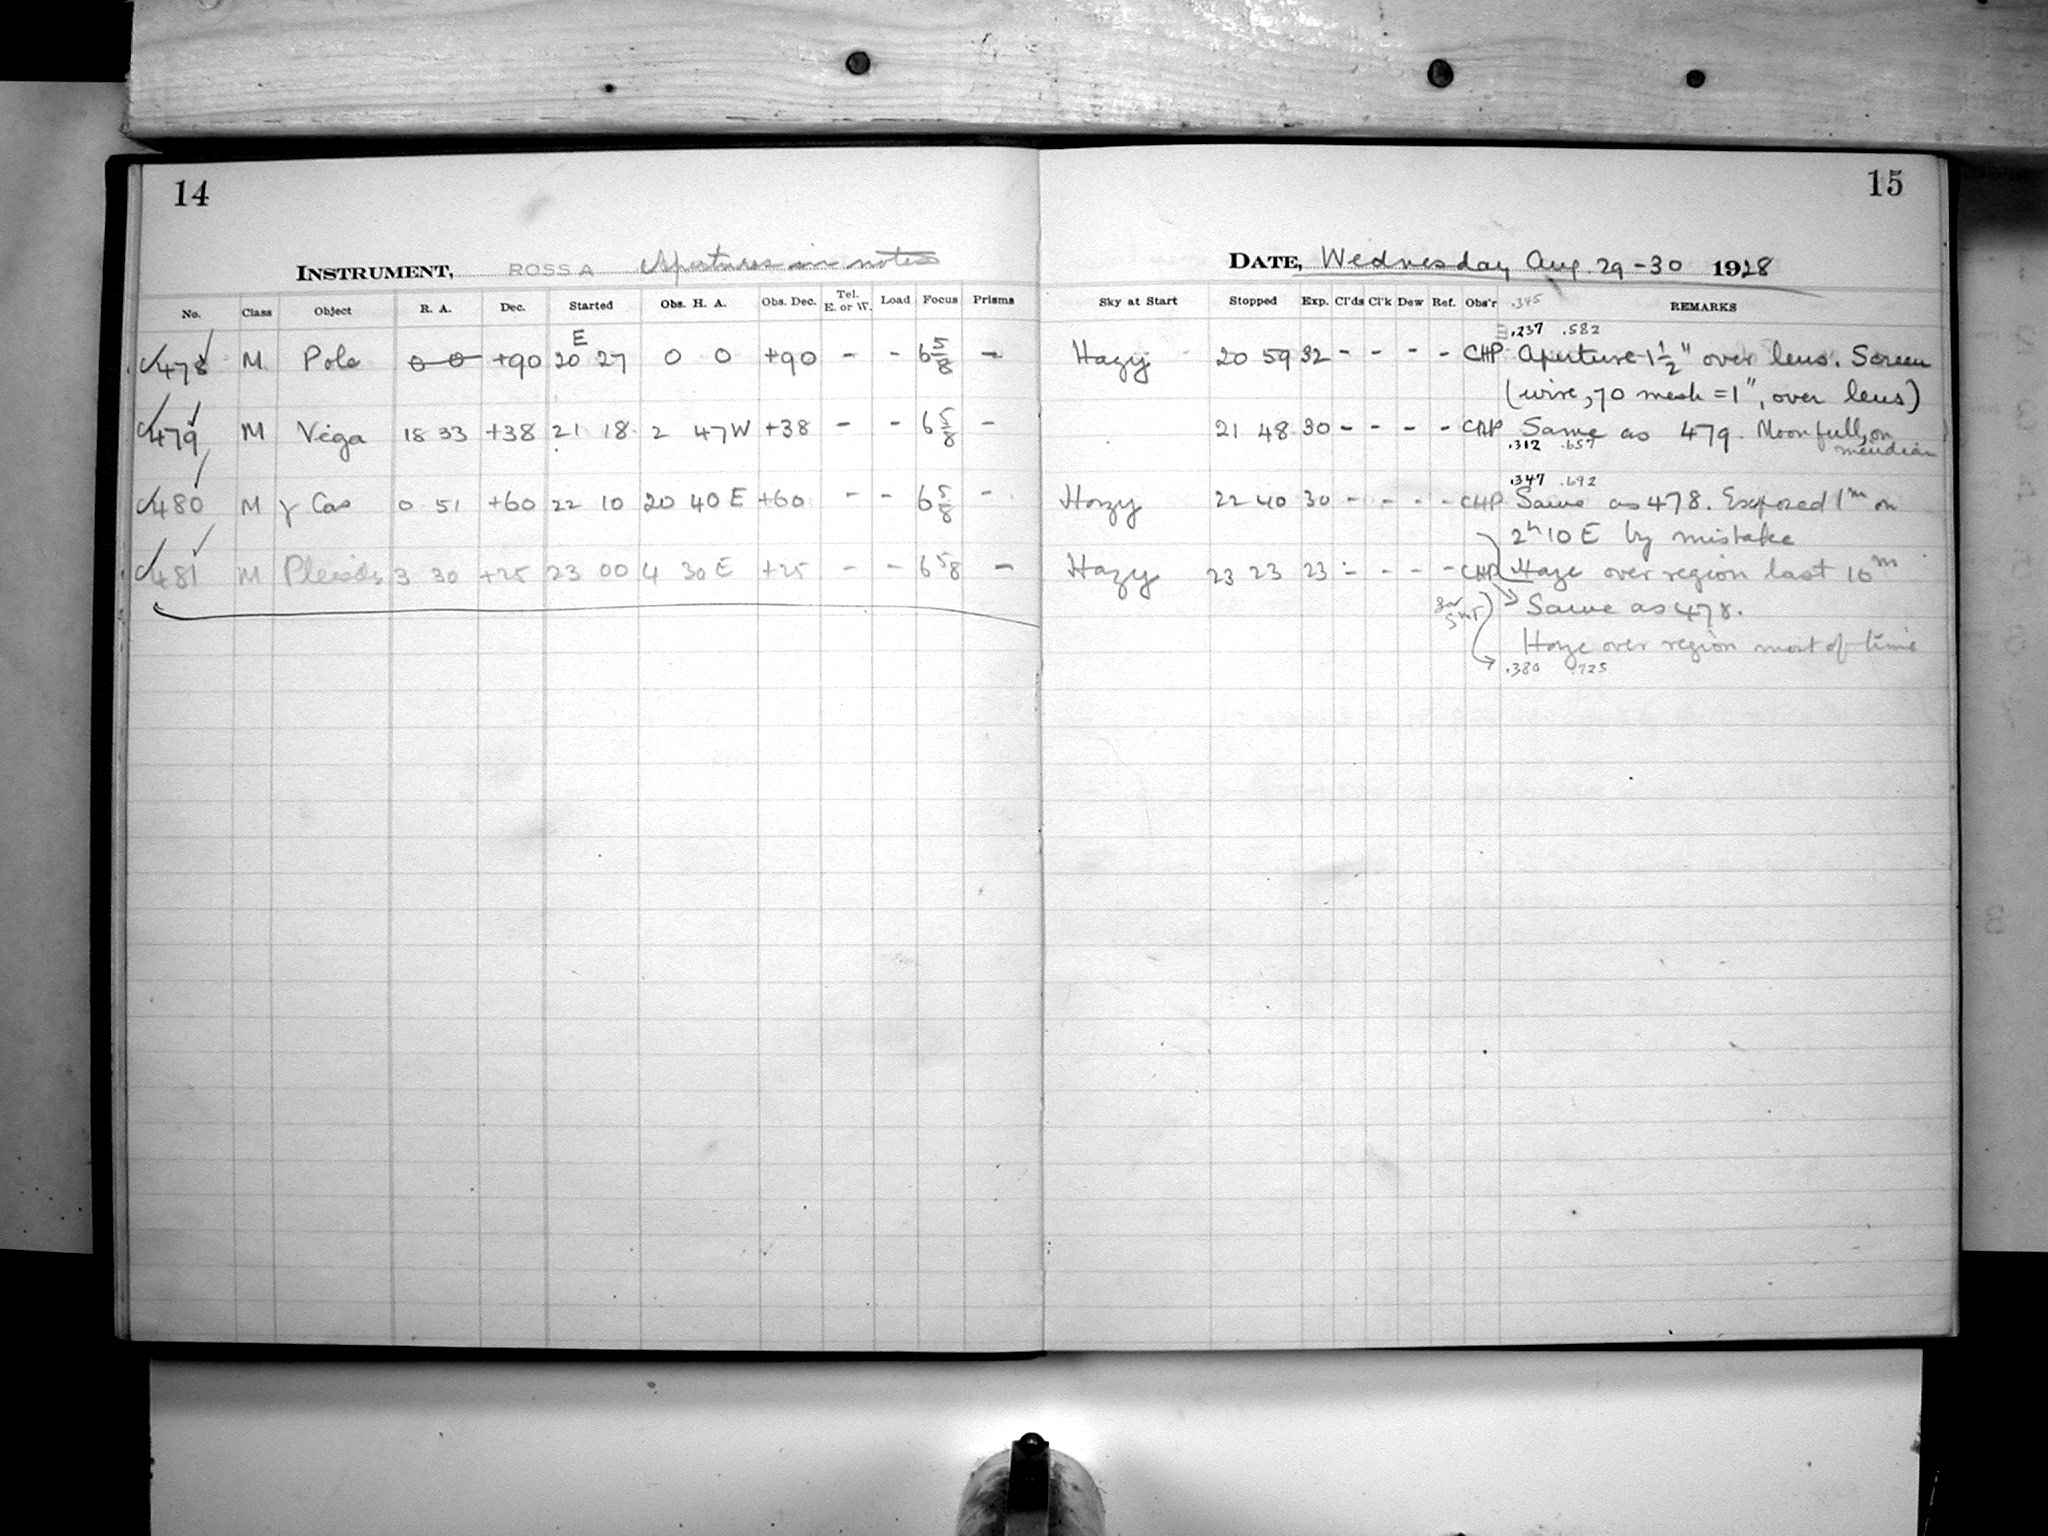 14
INSTRUMENT, ROSS A Apertures in notes
No. Class Object R. A. Dec. Started Obs. H. A. Obs. Dec. Tel. E. or W. Load Focus Prisms
E
478 M Pole 0 0 +90 20 27 0 0 +90 - - 6 5/8 -
479 M Vega 18 33 +38 21 18 2 47 W +38 - - 6 5/8 -
480 M γ Cas 0 51 +60 22 10 20 40 E +60 - - 6 5/8 -
481 M Pleiades 3 30 +25 23 00 4 30 E +25 - - 6 5/8 -
15
DATE, Wednesday Aug. 29-30 1928
Sky at Start Stopped Exp. Cl'ds Cl'k Dew Ref. Obs'r REMARKS
.345
.237 .582
Hazy 20 59 32 - - - - CHP Aperture 1 1/2" over lens. Screen
(wire, 70 mesh = 1", over lens)
21 48 30 - - - - CHP Same as 479. Moon full, on
meridian
.312 .657
.347 .692
Hazy 22 40 30 - - - - CHP Same as 478. Exposed 1m on
2h 10 E by mistake
Hazy 23 23 23 - - - - CHP Haze over region last 10m
Same as 478.
Haze over region most of time
.380 .725